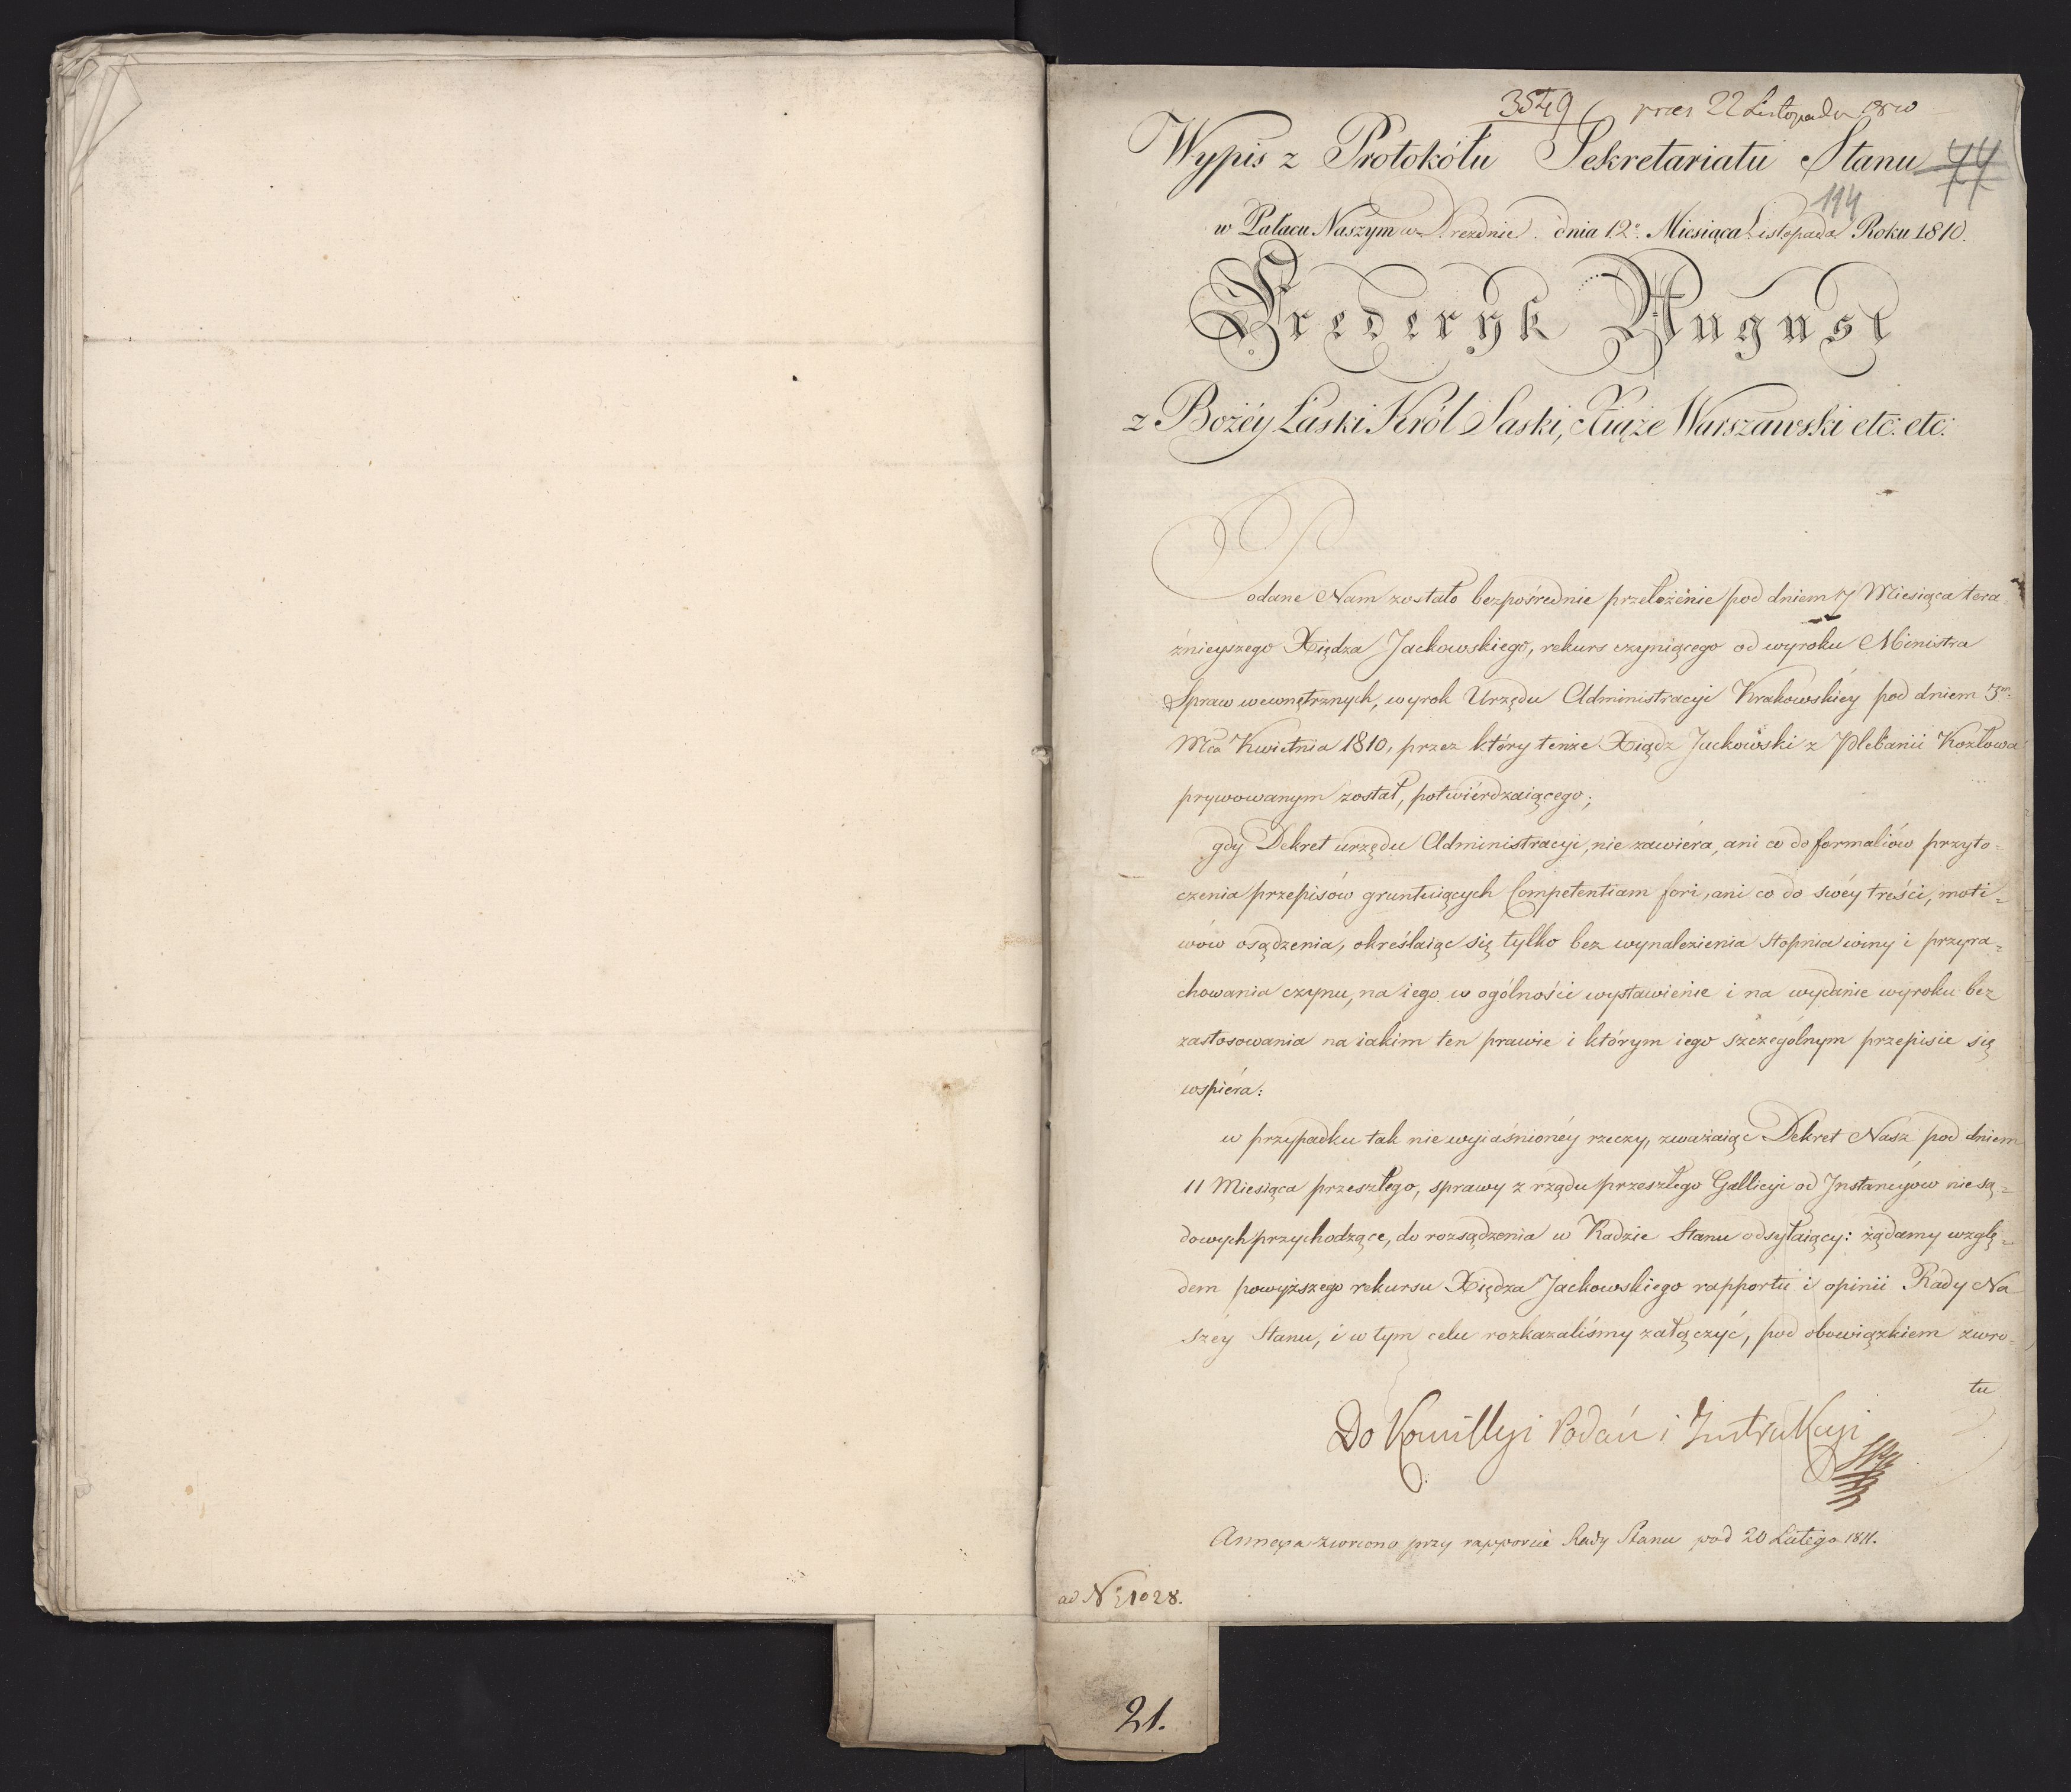 3549 prez 22 Listopada 1810
Wypis z Protokółu Sekretariatu Stanu 77
114
w Pałacu Naszym w Dreźnie dnia 12º Miesiąca Listopada Roku 1810.
Fryderyk August
z Bożéy Łaski Król Saski, Xiąże Warszawski etc: etc:
Podane Nam zostało bezpośrednie przełożenie pod dniem 7 Miesiąca tera=
źnieyszego Xiędza Jackowskiego, rekurs czyniącego od wyroku Ministra
Spraw wewnętrznych, wyrok Urzędu Administracyi Krakowskiéy pod dniem 3m
Mca Kwietnia 1810, przez który tenże Xiądz Jackowski z Plebanii Kozłowa
prywowanym został, potwierdzaiącego;
gdy Dekret urzędu Administracyi, nie zawiéra, ani co do formaliów przyto=
czenia przepisów gruntuiących Competentiam fori, ani co do swéy treści, moti=
wów osądzenia, określaiąc się tylko bez wynalezienia stopnia winy i przyra=
chowania czynu, na iego w ogólności wystawienie i na wydanie wyroku bez
zastosowania na iakim ten prawie i którym iego szczególnym przepisie się
wspiéra:
w przypadku tak nie wyiaśnionéy rzeczy, zważaiąc Dekret Nasz pod dniem
11 Miesiąca przeszłego, sprawy z rządu przeszłego Gallicyi od Instancyów niesą=
dowych przychodzące, do rozsądzenia w Radzie Stanu odsyłaiący: żądamy wzglę=
dem powyższego rekursu Xiędza Jackowskiego rapportu i opinii Rady Na
széy Stanu, i w tym celu rozkazaliśmy załączyć, pod obowiązkiem zwro=
tu
Do Kommissyi Podań i Instrukcyi
Annexa zwrócono przy rapporcie Rady Stanu pod 20 Lutego 1811.
ad N 1028.
21.